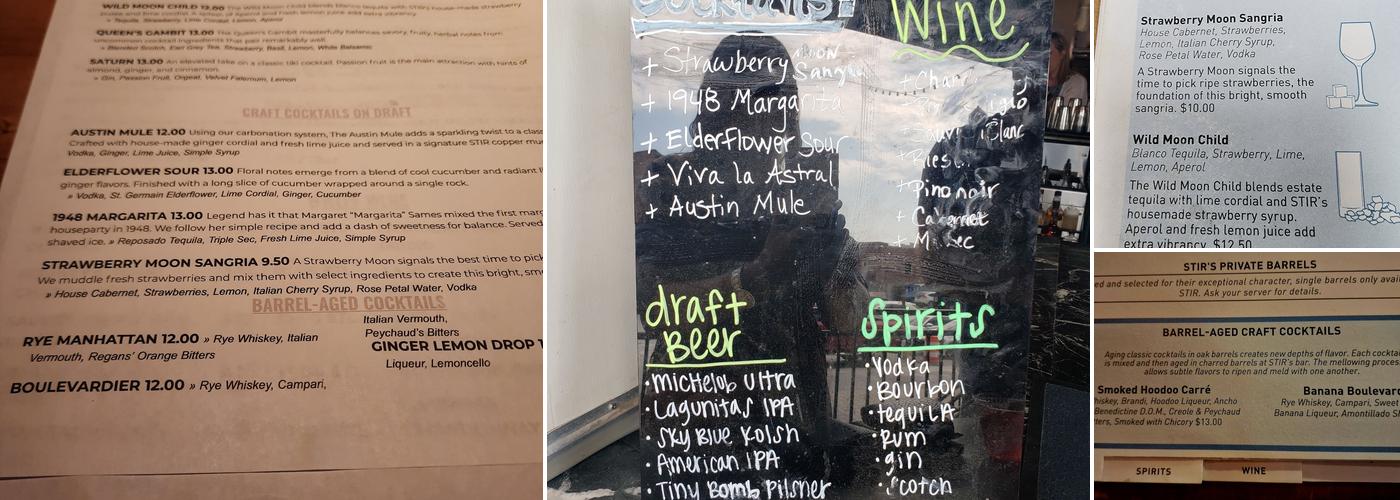 WILD MOON CHILD 13.00 The Wild Moon Child blends blanco tequila with STIR's house-made strawberry
» Tequila, Strawberry, Lime Cordial, Lemon, Aperol
QUEEN'S GAMBIT 13.00 The Queen's Gambit masterfully balances savory, fruity, herbal notes from
uncommon cocktail ingredients that pair remarkably well.
» Blended Scotch, Earl Grey Tea, Strawberry, Basil, Lemon, White Balsamic
SATURN 13.00 An elevated take on a classic tiki cocktail. Passion fruit is the main attraction with hints of
almond, ginger, and cinnamon.
» Gin, Passion Fruit, Orgeat, Velvet Falernum, Lemon
CRAFT COCKTAILS ON DRAFT
AUSTIN MULE 12.00 Using our carbonation system, The Austin Mule adds a sparkling twist to a class
Crafted with house-made ginger cordial and fresh lime juice and served in a signature STIR copper mu
Vodka, Ginger, Lime Juice, Simple Syrup
ELDERFLOWER SOUR 13.00 Floral notes emerge from a blend of cool cucumber and radiant l
ginger flavors. Finished with a long slice of cucumber wrapped around a single rock.
» Vodka, St. Germain Elderflower, Lime Cordial, Ginger, Cucumber
1948 MARGARITA 13.00 Legend has it that Margaret "Margarita" Sames mixed the first marg
houseparty in 1948. We follow her simple recipe and add a dash of sweetness for balance. Served
shaved ice. » Reposado Tequila, Triple Sec, Fresh Lime Juice, Simple Syrup
STRAWBERRY MOON SANGRIA 9.50 A Strawberry Moon signals the best time to pick
We muddle fresh strawberries and mix them with select ingredients to create this bright, sm
» House Cabernet, Strawberries, Lemon, Italian Cherry Syrup, Rose Petal Water, Vodka
BARREL-AGED COCKTAILS
RYE MANHATTAN 12.00 » Rye Whiskey, Italian
Vermouth, Regans' Orange Bitters
BOULEVARDIER 12.00 » Rye Whiskey, Campari,
Italian Vermouth,
Peychaud's Bitters
GINGER LEMON DROP 1
Liqueur, Lemoncello
Cocktails
+ Strawberry Moon
Sangria
+ 1948 Margarita
+ Elderflower Sour
+ Viva la Astral
+ Austin Mule
Wine
+ Pino noir
+ Cabernet
draft
Beer
• Michelob Ultra
• Lagunitas IPA
• Sky Blue Kolsh
• American IPA
• Tiny Bomb Pilsner
Spirits
• Vodka
• Bourbon
• tequila
• Rum
• gin
• Scotch
Strawberry Moon Sangria
House Cabernet, Strawberries,
Lemon, Italian Cherry Syrup,
Rose Petal Water, Vodka
A Strawberry Moon signals the
time to pick ripe strawberries, the
foundation of this bright, smooth
sangria. $10.00
Wild Moon Child
Blanco Tequila, Strawberry, Lime,
Lemon, Aperol
The Wild Moon Child blends estate
tequila with lime cordial and STIR's
housemade strawberry syrup.
Aperol and fresh lemon juice add
extra vibrancy. $12.50
STIR'S PRIVATE BARRELS
ed and selected for their exceptional character, single barrels only avail
STIR. Ask your server for details.
BARREL-AGED CRAFT COCKTAILS
Aging classic cocktails in oak barrels creates new depths of flavor. Each cockta
is mixed and then aged in charred barrels at STIR's bar. The mellowing proces
allows subtle flavors to ripen and meld with one another.
Smoked Hoodoo Carré
hiskey, Brandi, Hoodoo Liqueur, Ancho
Benedictine D.O.M., Creole & Peychaud
tters, Smoked with Chicory $13.00
Banana Boulevar
Rye Whiskey, Campari, Sweet
Banana Liqueur, Amontillado S
SPIRITS
WINE